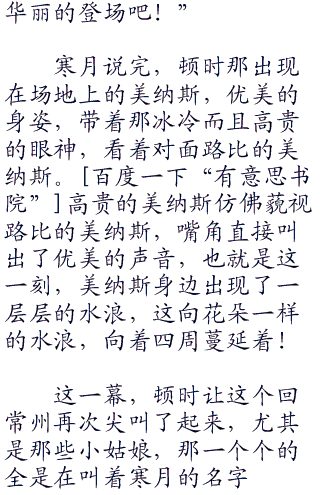 华丽的登场吧！”
寒月说完，顿时那出现
在场地上的美纳斯，优美的
身姿，带着那冰冷而且高贵
的眼神，看着对面路比的美
纳斯。[百度一下“有意思书
院”]高贵的美纳斯仿佛藐视
路比的美纳斯，嘴角直接叫
出了优美的声音，也就是这
一刻，美纳斯身边出现了一
层层的水浪，这向花朵一样
的水浪，向着四周蔓延着！
这一幕，顿时让这个回
常州再次尖叫了起来，尤其
是那些小姑娘，那一个个的
全是在叫着寒月的名字